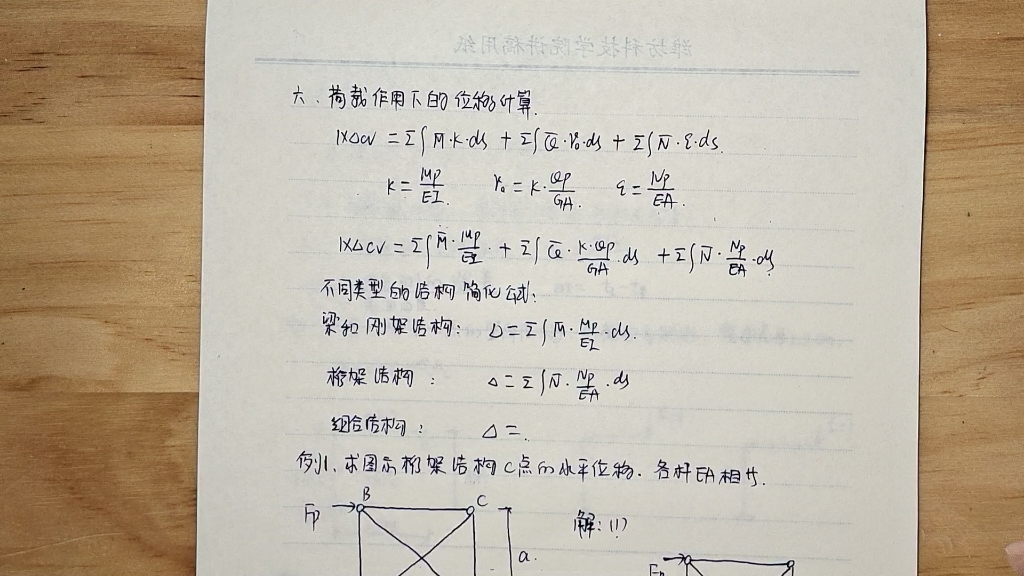 潍坊科技学院讲稿用纸
六、荷载作用下的位移计算.
1×ΔCV = Σ∫M̄·K·ds + Σ∫Q̄·γ₀·ds + Σ∫N̄·ε·ds.
K = Mp/EI. γ₀ = K·Qp/GA. ε = Np/EA.
1×ΔCV = Σ∫M̄·Mp/EI + Σ∫Q̄·K·Qp/GA·ds + Σ∫N̄·Np/EA·ds
不同类型的结构简化公式:
梁和刚架结构: Δ = Σ∫M̄·Mp/EI·ds.
桁架结构: Δ = Σ∫N̄·Np/EA·ds
组合结构: Δ =.
例1、求图示桁架结构C点的水平位移. 各杆EA相等.
Fp B C a. 解:(1)
Fp